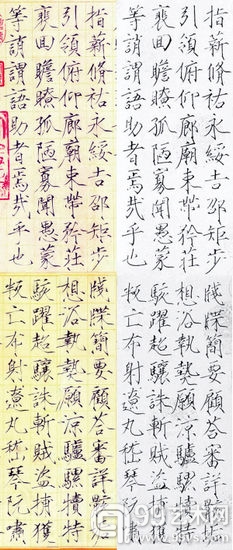 指薪脩祜永綏吉邵矩步
引領俯仰廊廟束帶矜莊
裵回瞻眺孤陋寡聞愚蒙
等誚謂語助者焉哉乎也
指薪脩祜永綏吉邵矩步
引領俯仰廊廟束帶矜莊
裵回瞻眺孤陋寡聞愚蒙
等誚謂語助者焉哉乎也
牋牒簡要顧答審詳骸垢
想浴執熱願涼驢騾犢特
駭躍超驤誅斬賊盜捕獲
叛亡布射遼丸嵇琴阮嘯
牋牒簡要顧答審詳骸垢
想浴執熱願涼驢騾犢特
駭躍超驤誅斬賊盜捕獲
叛亡布射遼丸嵇琴阮嘯
99艺术网